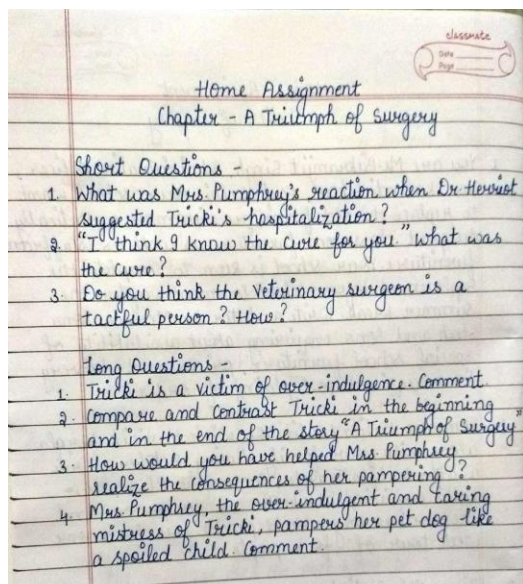 classmate
Date
Page
Home Assignment
Chapter - A Triumph of Surgery
Short Questions -
1. What was Mrs. Pumphrey's reaction when Dr Herriot
suggested Tricki's hospitalization?
2. "I think I know the cure for you." What was
the cure?
3. Do you think the veterinary surgeon is a
tactful person? How?
Long Questions -
1. Tricki is a victim of over-indulgence. Comment.
2. Compare and Contrast Tricki in the beginning
and in the end of the story "A Triumph of Surgery"
3. How would you have helped Mrs. Pumphrey
realize the consequences of her pampering?
4. Mrs. Pumphrey, the over-indulgent and caring
mistress of Tricki, pampers her pet dog like
a spoiled child. Comment.